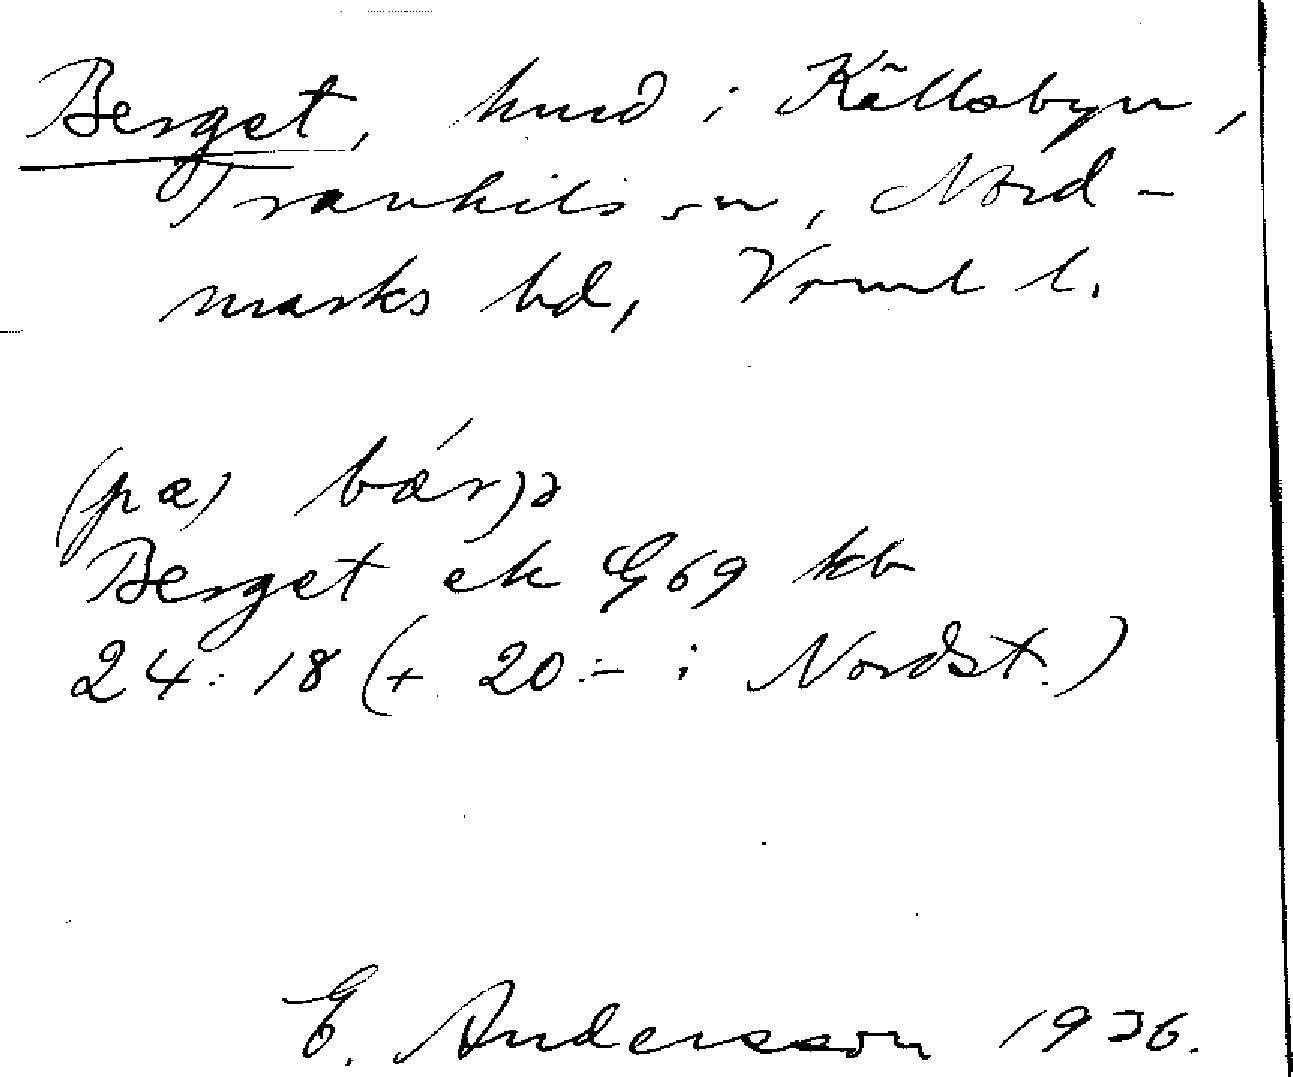 Berget, hmd i Källsbyn,
Trankils sn, Nord-
marks hd, Vrml l.
(pæ) bær̀jə
Berget ek G69 kb
24:18 (+ 20:- i Nordst.)
E. Andersson 1936.